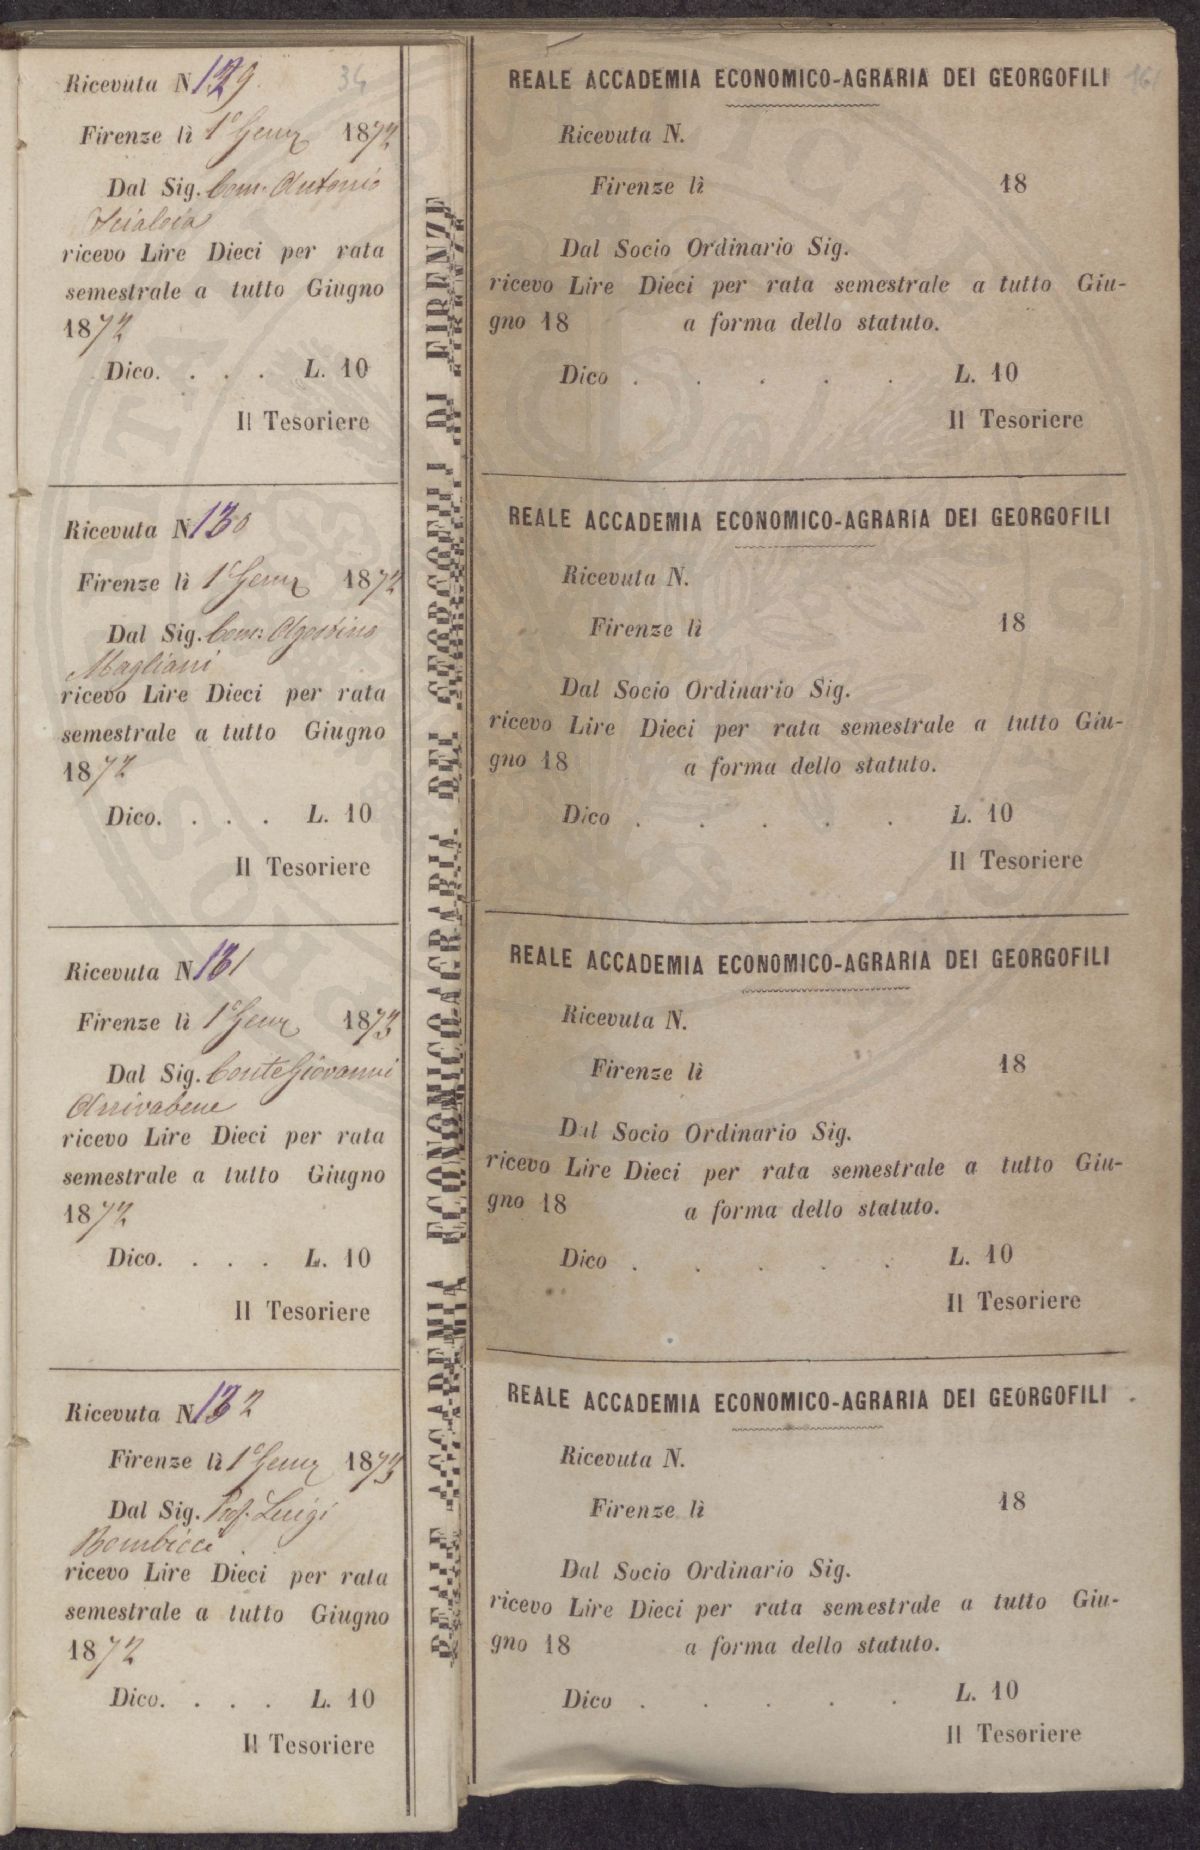 Ricevuta N. 129 34
Firenze lì 1° Genn 1872
Dal Sig. Com. Antonio
Scialoia
ricevo Lire Dieci per rata
semestrale a tutto Giugno
1872
Dico. . . . L. 10
Il Tesoriere
Ricevuta N. 130
Firenze lì 1° Genn 1872
Dal Sig. Com. Agostino
Magliani
ricevo Lire Dieci per rata
semestrale a tutto Giugno
1872
Dico. . . . L. 10
Il Tesoriere
Ricevuta N. 131
Firenze lì 1° Genn 1872
Dal Sig. Conte Giovanni
Arrivabene
ricevo Lire Dieci per rata
semestrale a tutto Giugno
1872
Dico. . . . L. 10
Il Tesoriere
Ricevuta N. 132
Firenze lì 1° Genn 1872
Dal Sig. Prof. Luigi
Bombicci
ricevo Lire Dieci per rata
semestrale a tutto Giugno
1872
Dico. . . . L. 10
Il Tesoriere
REALE ACCADEMIA ECONOMICO-AGRARIA DEI GEORGOFILI DI FIRENZE
REALE ACCADEMIA ECONOMICO-AGRARIA DEI GEORGOFILI 161
Ricevuta N.
Firenze lì 18
Dal Socio Ordinario Sig.
ricevo Lire Dieci per rata semestrale a tutto Giu-
gno 18 a forma dello statuto.
Dico . . . . . L. 10
Il Tesoriere
REALE ACCADEMIA ECONOMICO-AGRARIA DEI GEORGOFILI
Ricevuta N.
Firenze lì 18
Dal Socio Ordinario Sig.
ricevo Lire Dieci per rata semestrale a tutto Giu-
gno 18 a forma dello statuto.
Dico . . . . . L. 10
Il Tesoriere
REALE ACCADEMIA ECONOMICO-AGRARIA DEI GEORGOFILI
Ricevuta N.
Firenze lì 18
Dal Socio Ordinario Sig.
ricevo Lire Dieci per rata semestrale a tutto Giu-
gno 18 a forma dello statuto.
Dico . . . . . L. 10
Il Tesoriere
REALE ACCADEMIA ECONOMICO-AGRARIA DEI GEORGOFILI
Ricevuta N.
Firenze lì 18
Dal Socio Ordinario Sig.
ricevo Lire Dieci per rata semestrale a tutto Giu-
gno 18 a forma dello statuto.
Dico . . . . . L. 10
Il Tesoriere